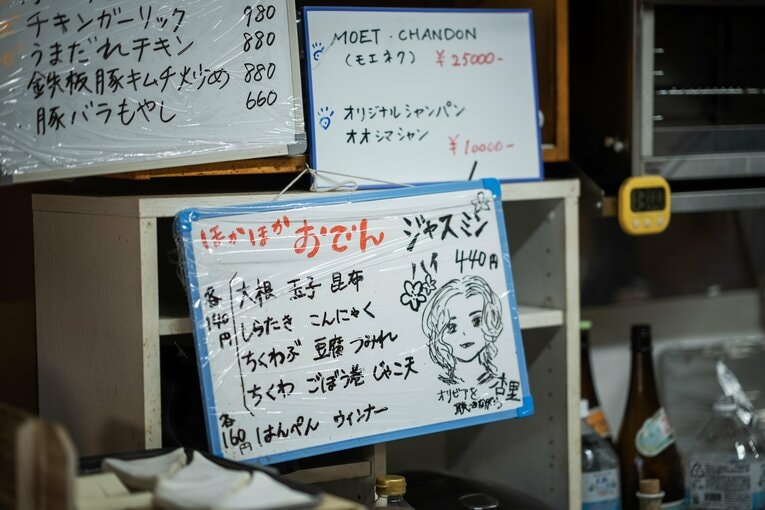 チキンガーリック 980
うまだれチキン 880
鉄板豚キムチ炒め 880
豚バラもやし 660
MOET・CHANDON
(モエネク) ¥25000-
オリジナルシャンパン
オオシマシャン
¥10000-
ほかほか おでん
各140円
大根 玉子 昆布
しらたき こんにゃく
ちくわぶ 豆腐 つみれ
ちくわ ごぼう巻 じゃこ天
各160円 はんぺん ウィンナー
ジャスミン
ハイ 440円
オリビアを
杏里